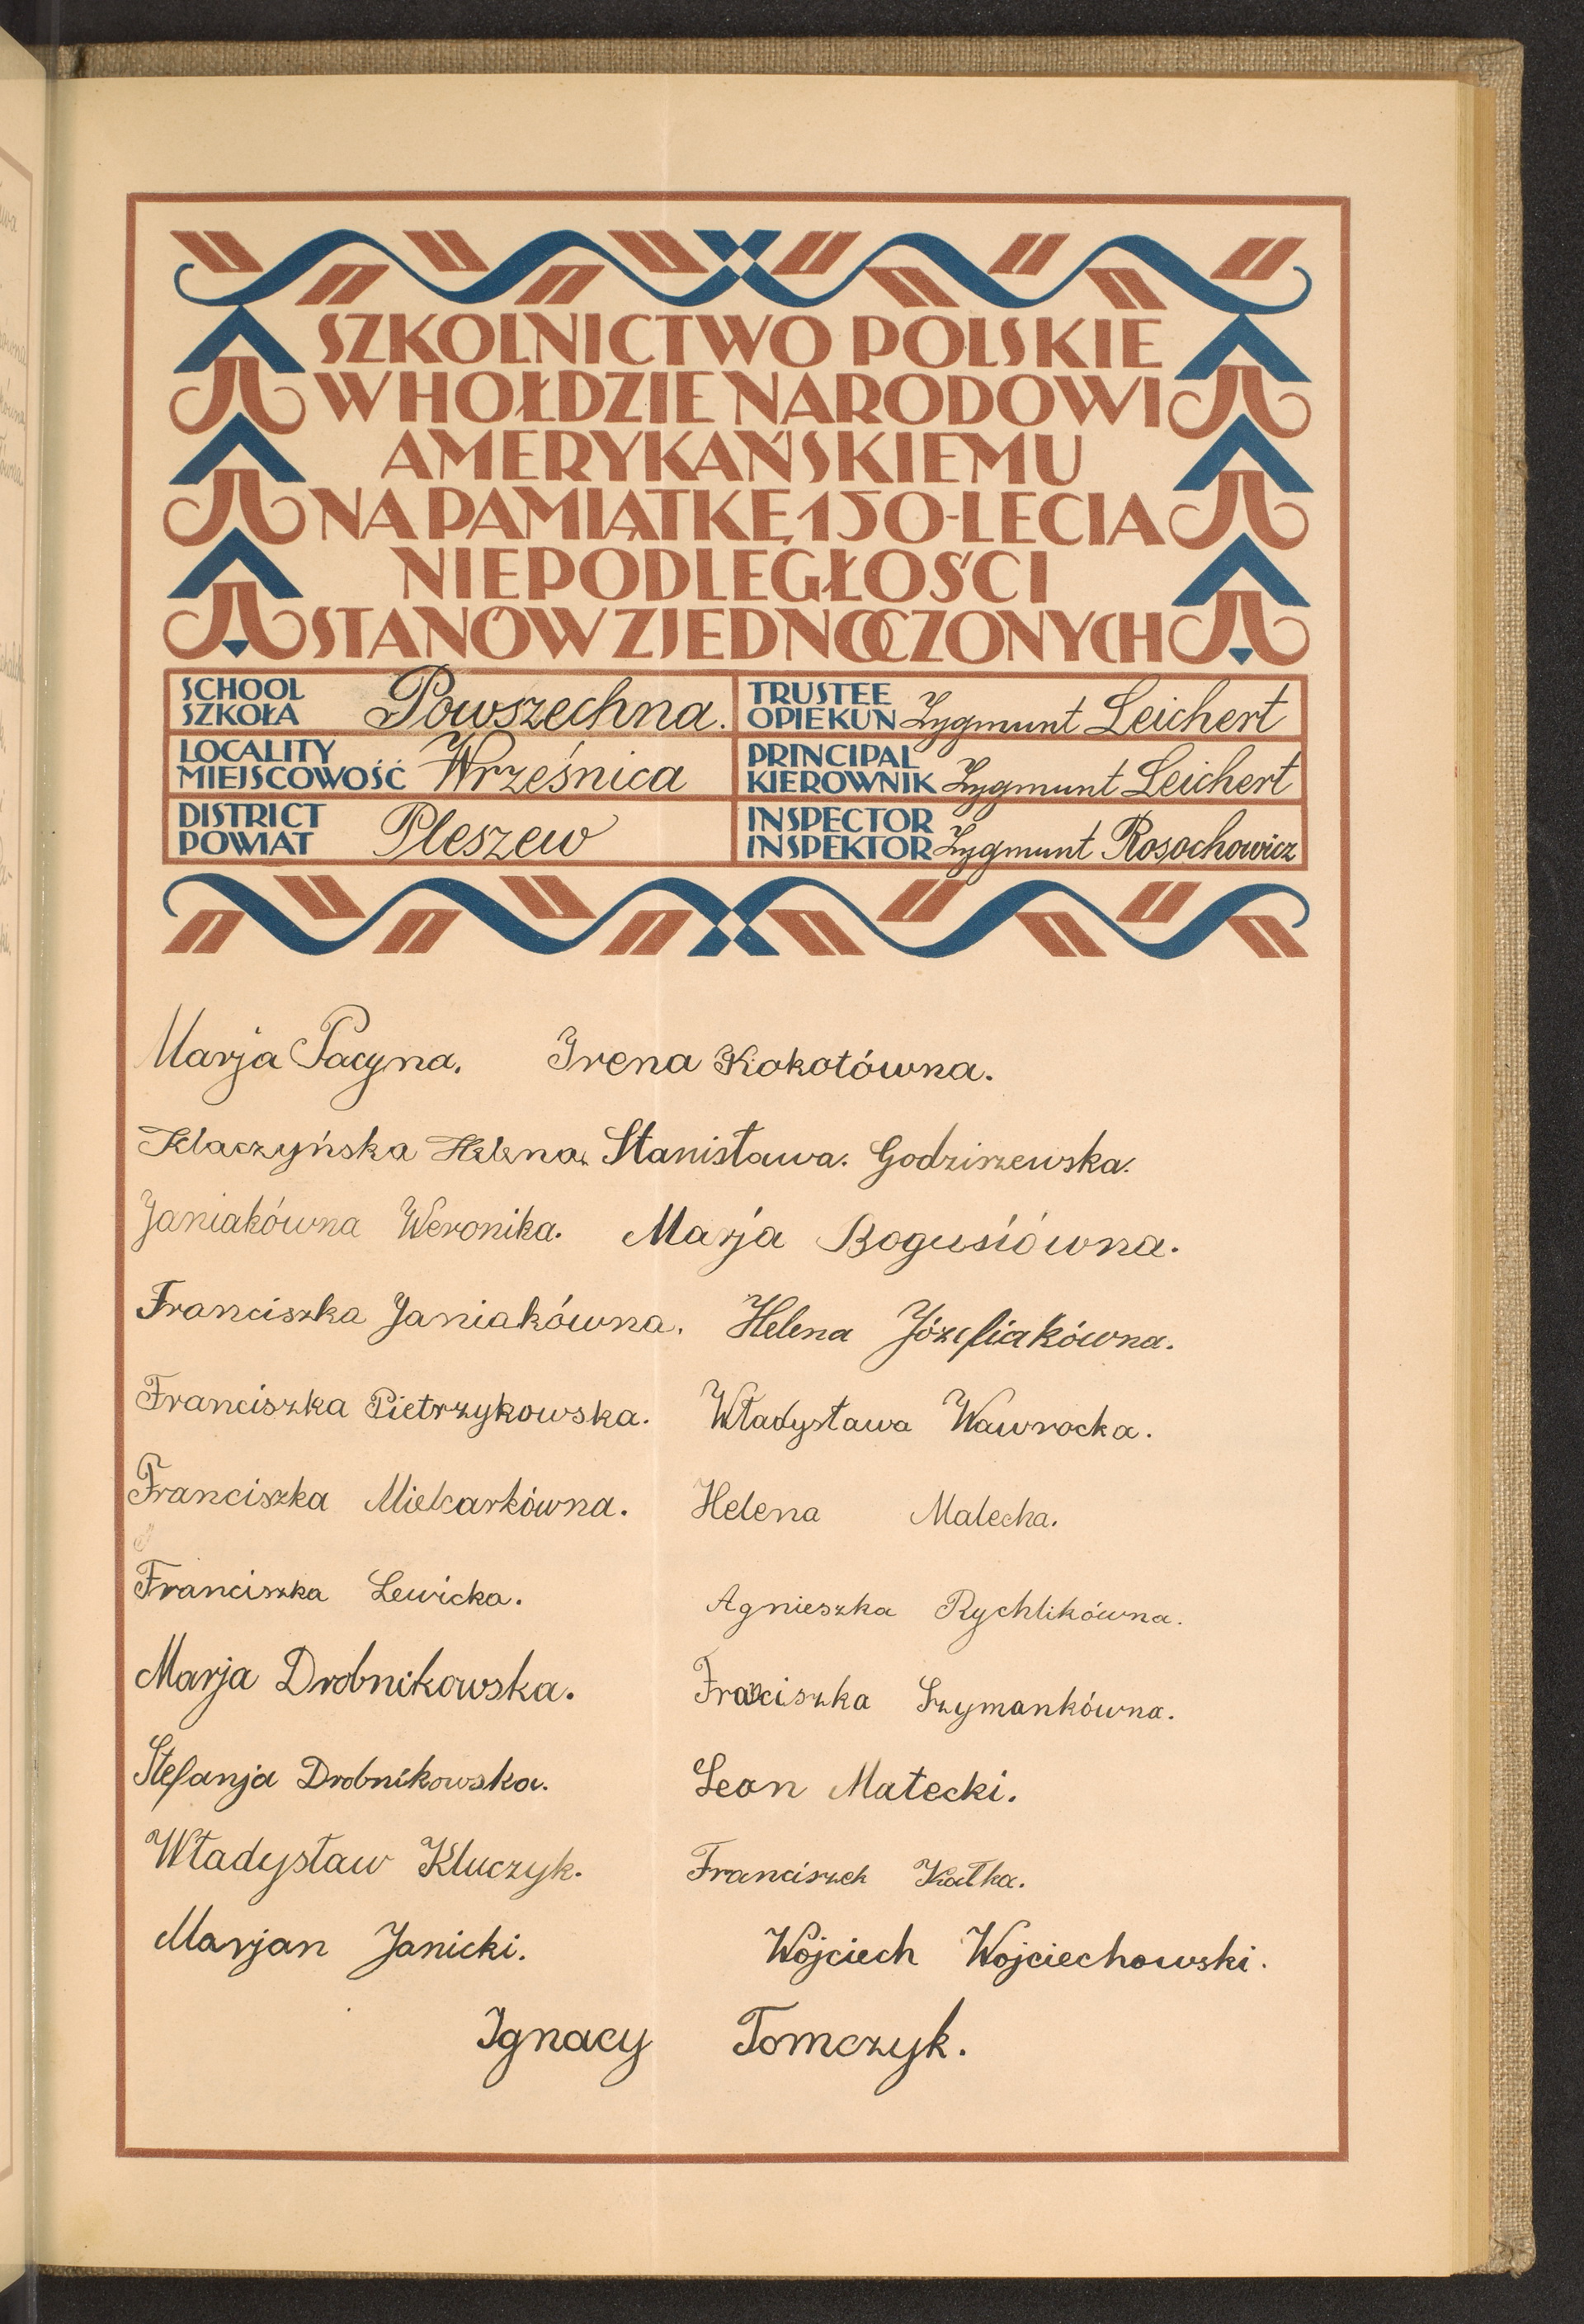 SZKOLNICTWO POLSKIE
W HOŁDZIE NARODOWI
AMERYKAŃSKIEMU
NA PAMIĄTKĘ 150-LECIA
NIEPODLEGŁOŚCI
STANÓW ZJEDNOCZONYCH
SCHOOL
SZKOŁA Powszechna.
TRUSTEE
OPIEKUN Zygmunt Leichert
LOCALITY
MIEJSCOWOŚĆ Wrześnica
PRINCIPAL
KIEROWNIK Zygmunt Leichert
DISTRICT
POWIAT Pleszew
INSPECTOR
INSPEKTOR Zygmunt Rosochowicz
Marja Pacyna. Irena Kokotówna.
Klaczyńska Helena. Stanisława. Godziszewska.
Janiakówna Weronika. Marja Bogusiówna.
Franciszka Janiakówna. Helena Józefiakówna.
Franciszka Pietrzykowska. Władysława Wawrocka.
Franciszka Mielcarkówna. Helena Malecka.
Franciszka Lewicka. Agnieszka Rychlikówna.
Marja Drobnikowska. Franciszka Szymankówna.
Stefanja Drobnikowska. Leon Małecki.
Władysław Kluczyk. Franciszek Kałka.
Marjan Janicki. Wojciech Wojciechowski.
Ignacy Tomczyk.